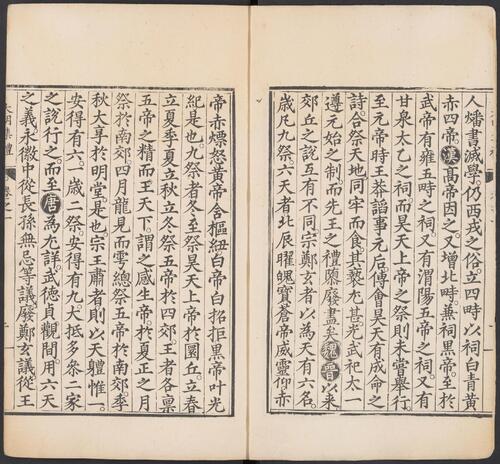 人燔書滅學仍西戎之俗立四時以祠白青黃
赤四帝漢高帝因之又增北畤兼祠黑帝至於
武帝有雍五畤之祠又有渭陽五帝之祠又有
甘泉太乙之祠而昊天上帝之祭則未嘗舉行
至元帝時王莽諂事元后傅會昊天有成命之
詩合祭天地同牢而食其褻尤甚光武祀太一
遵元始之制而先王之禮隳廢盡矣魏晉以來
郊丘之說互有不同宗鄭玄者以為天有六名
歲凡九祭六天者北辰曜魄寶蒼帝威靈仰赤
帝赤熛怒黃帝含樞紐白帝白招拒黑帝叶光
紀是也九祭者冬至祭昊天上帝於圜丘立春
立夏季夏立秋立冬祭五帝於四郊王者各禀
五帝之精而王天下謂之感生帝於夏正之月
祭於南郊四月龍見而雩總祭五帝於南郊季
秋大享於明堂是也宗王肅者則以天體惟一
安得有六一歲二祭安得有九大抵多參二家
之說行之而至唐為尤詳武德貞觀間用六天
之義永徽中從長孫無忌等議廢鄭玄議從王